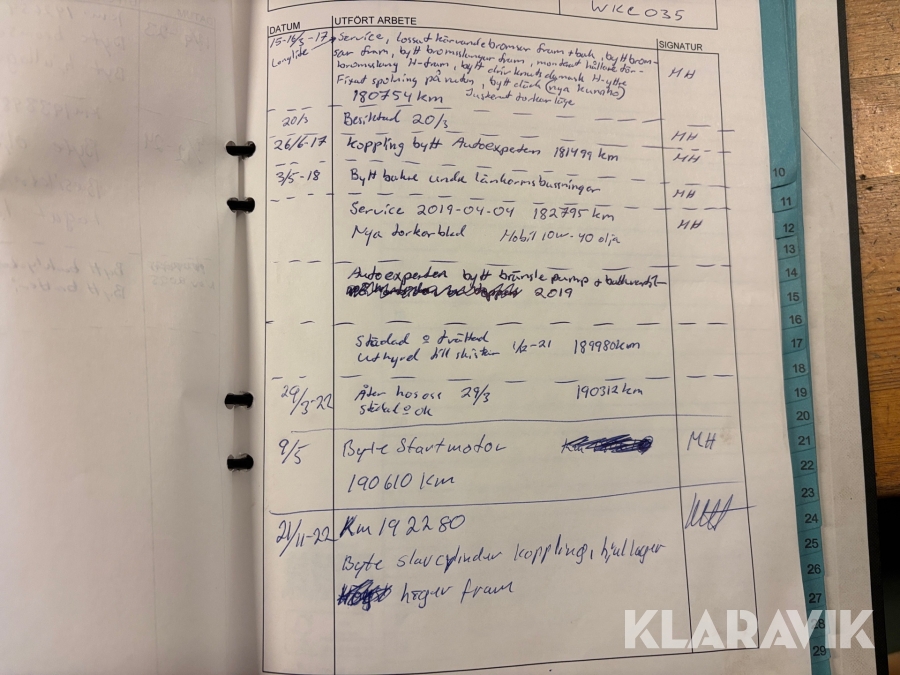 WKC035
DATUM
UTFÖRT ARBETE
SIGNATUR
15-16/3-17
Service, lossat kärvande bromsar fram+bak, bytt brom-
sar fram, bytt bromsslangar fram, monterat hållare för-
bromsslang H-fram, bytt drivknutsdamask H-yttre
Fixat spolning på rutan, bytt däck (nya Kumho)
180754 km
MH
20/3
Besiktad 20/3
MH
26/6-17
Koppling bytt Autoexperten 181499 km
MH
3/5-18
Bytt bakre undre länkarmsbussningar
MH
Service 2019-04-04 182795 km
Nya torkarblad Mobil 10w-40 olja
MH
Autoexperten bytt bränslepump +
2019
Städad o tvättad
Uthyrd till 1/2-21 189980km
29/3-22
Åter hos oss 29/3 190312 km
städad o ok
9/5
Byte Startmotor
MH
190610 km
21/11-22
Km 192280
Byte slavcylinder koppling, hjullager
höger fram
10
11
12
13
14
15
16
17
18
19
20
21
22
23
24
25
26
27
28
29
KLARAVIK